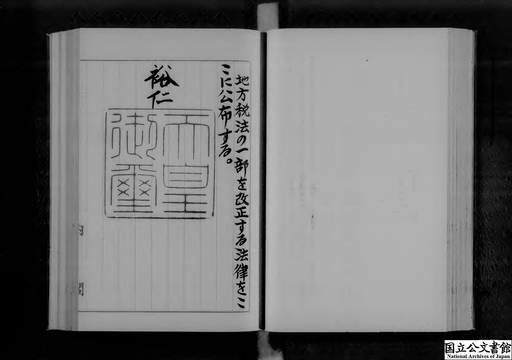 地方税法の一部を改正する法律をこ
こに公布する。
裕仁
天皇
御璽
内閣
国立公文書館
National Archives of Japan